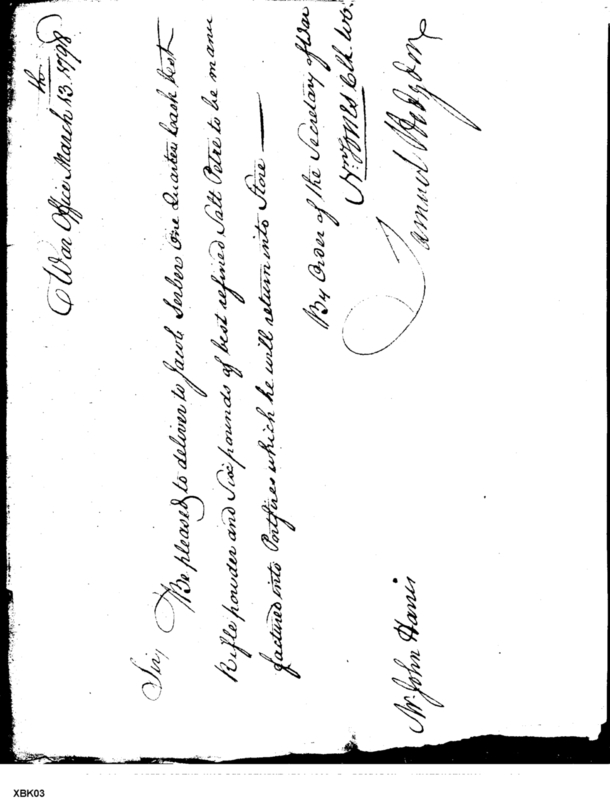 War Office March 13th 1798
Sir,
Be pleased to deliver to Jacob Serbers One Quarter Cask best
Rifle powder and Six pounds of best refined Salt Petre to be manu
factured into Portfires which he will return into Store —
By Order of the Secretary of War
Wm Jones Clk. WO.
Samuel Hodgdon
Mr. John Harris
XBK03